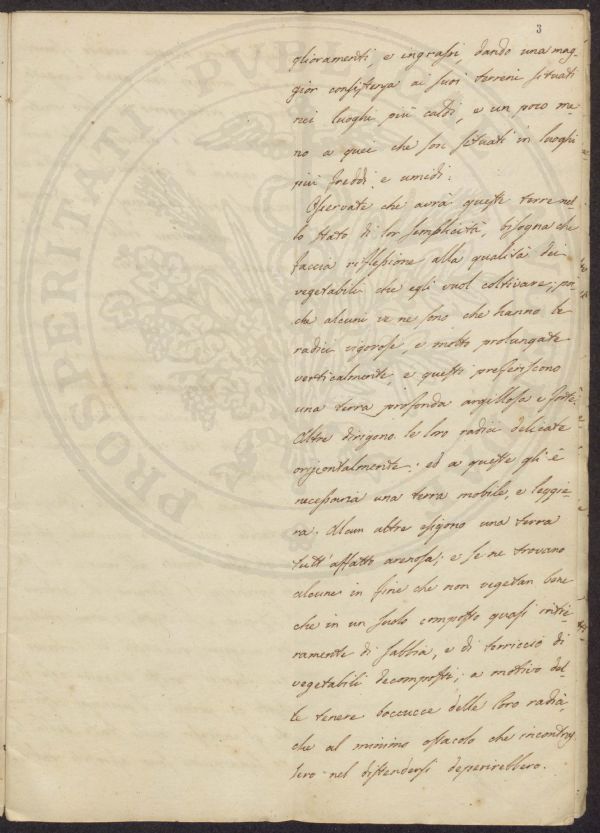 3
glioramenti, e ingrassi, dando una mag-
gior consistenza ai suoi terreni situati
nei luoghi più caldi, e un poco me-
no a quei che son situati in luoghi
più freddi e umidi.
Osservate che avrà queste terre nel
lo stato di lor semplicità, bisogna che
faccia riflessione alla qualità dei
vegetabili che egli vuol coltivare; poi
che alcuni ve ne sono che hanno le
radici vigorose, e molto prolungate
verticalmente, e questi preferiscono
una terra profonda argillosa e forte.
Altre dirigono le loro radici delicate
orizontalmente: ed a queste gli è
necessaria una terra mobile, e leggie-
ra. Alcun altre esigono una terra
tutt'affatto arenosa; e se ne trovano
alcune in fine che non vegetan bene
che in un suolo composto quasi intie-
ramente di sabbia, e di terriccio di
vegetabili decomposti; a motivo del-
le tenere boccucce delle loro radici
che al minimo ostacolo che incontras
sero nel distendersi deperirebbero.
PROSPERITATI PUBLICAE